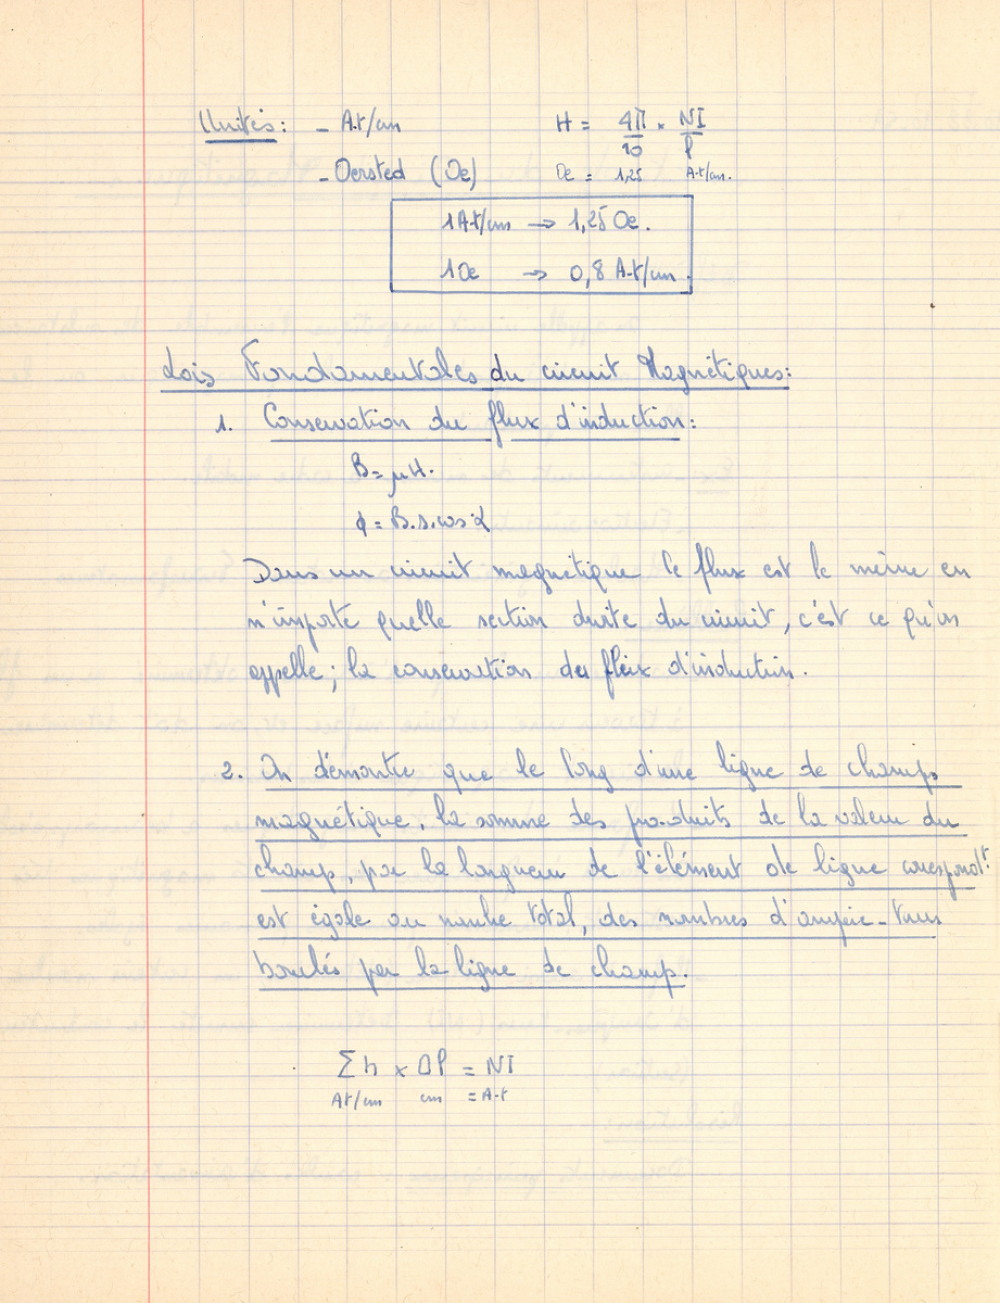 Unités: - A.t/cm H = 4π/10 × NI/l
- Oersted (Oe) Oe = 1,25 A.t/cm.
1 At/cm → 1,25 Oe.
1 Oe → 0,8 A.t/cm.
Lois Fondamentales du circuit Magnétiques:
1. Conservation du flux d'induction:
B = μH.
ϕ = B.s.cos α
Dans un circuit magnétique le flux est le même en
n'importe quelle section droite du circuit, c'est ce qu'on
appelle; la conservation du flux d'induction.
2. On démontre que le long d'une ligne de champs
magnétique, la somme des produits de la valeur du
champ, par la longueur de l'élément de ligne correspondt.
est égale au nombre total, des nombres d'ampère-tours
bouclés par la ligne de champ.
Σ h × Δl = NI
At/cm cm = A.t